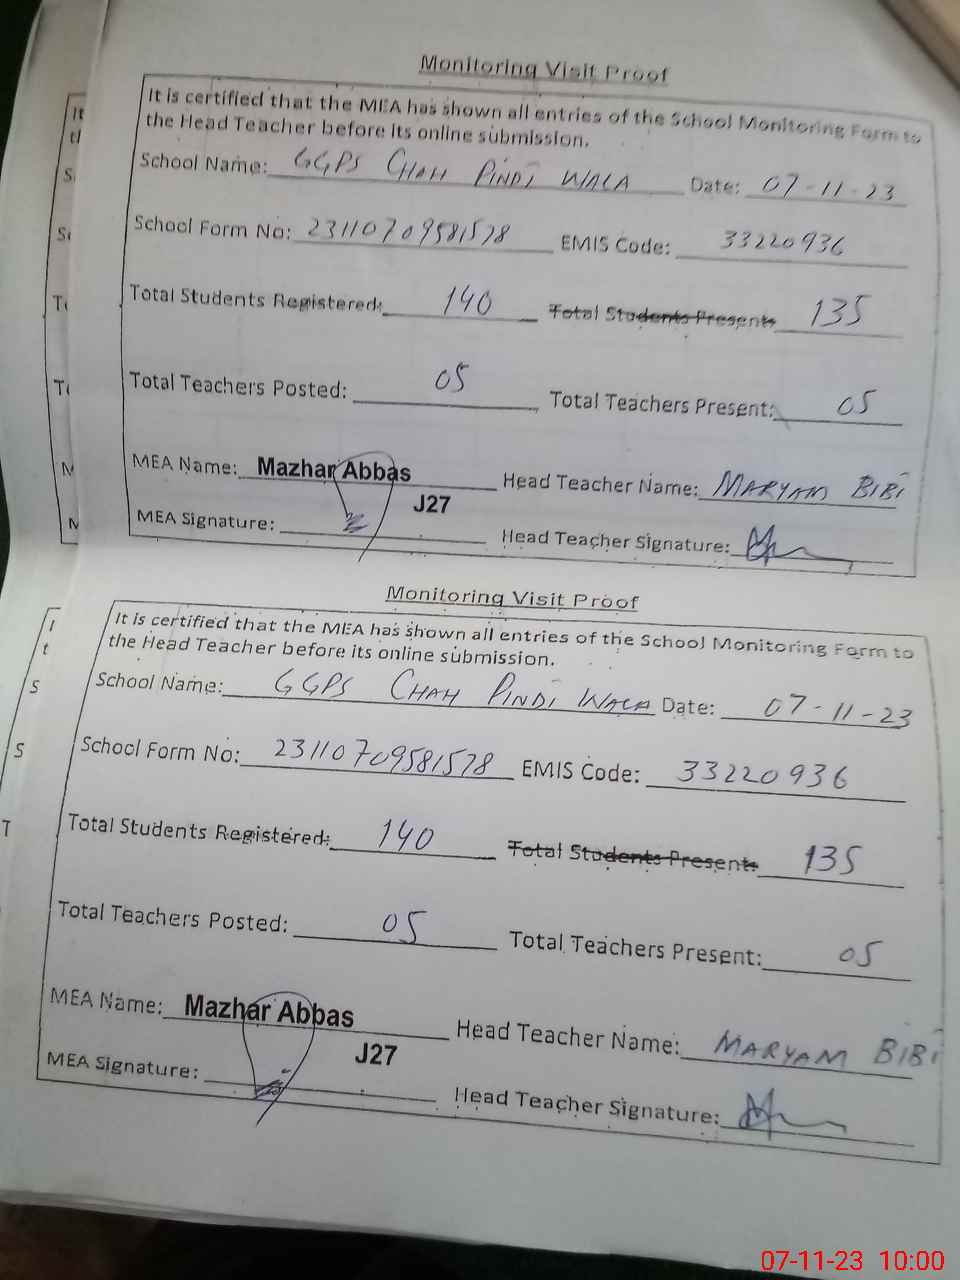 Monitoring Visit Proof
It is certified that the MEA has shown all entries of the School Monitoring Form to
the Head Teacher before its online submission.
School Name: GGPS CHAH PINDI WALA Date: 07-11-23
School Form No: 23110709581578 EMIS Code: 33220936
Total Students Registered: 140 Total Students Present: 135
Total Teachers Posted: 05 Total Teachers Present: 05
MEA Name: Mazhar Abbas Head Teacher Name: MARYAM BIBI
J27
MEA Signature: Head Teacher Signature:
Monitoring Visit Proof
It is certified that the MEA has shown all entries of the School Monitoring Form to
the Head Teacher before its online submission.
School Name: GGPS CHAH PINDI WALA Date: 07-11-23
School Form No: 23110709581578 EMIS Code: 33220936
Total Students Registered: 140 Total Students Present: 135
Total Teachers Posted: 05 Total Teachers Present: 05
MEA Name: Mazhar Abbas Head Teacher Name: MARYAM BIBI
J27
MEA Signature: Head Teacher Signature:
07-11-23 10:00